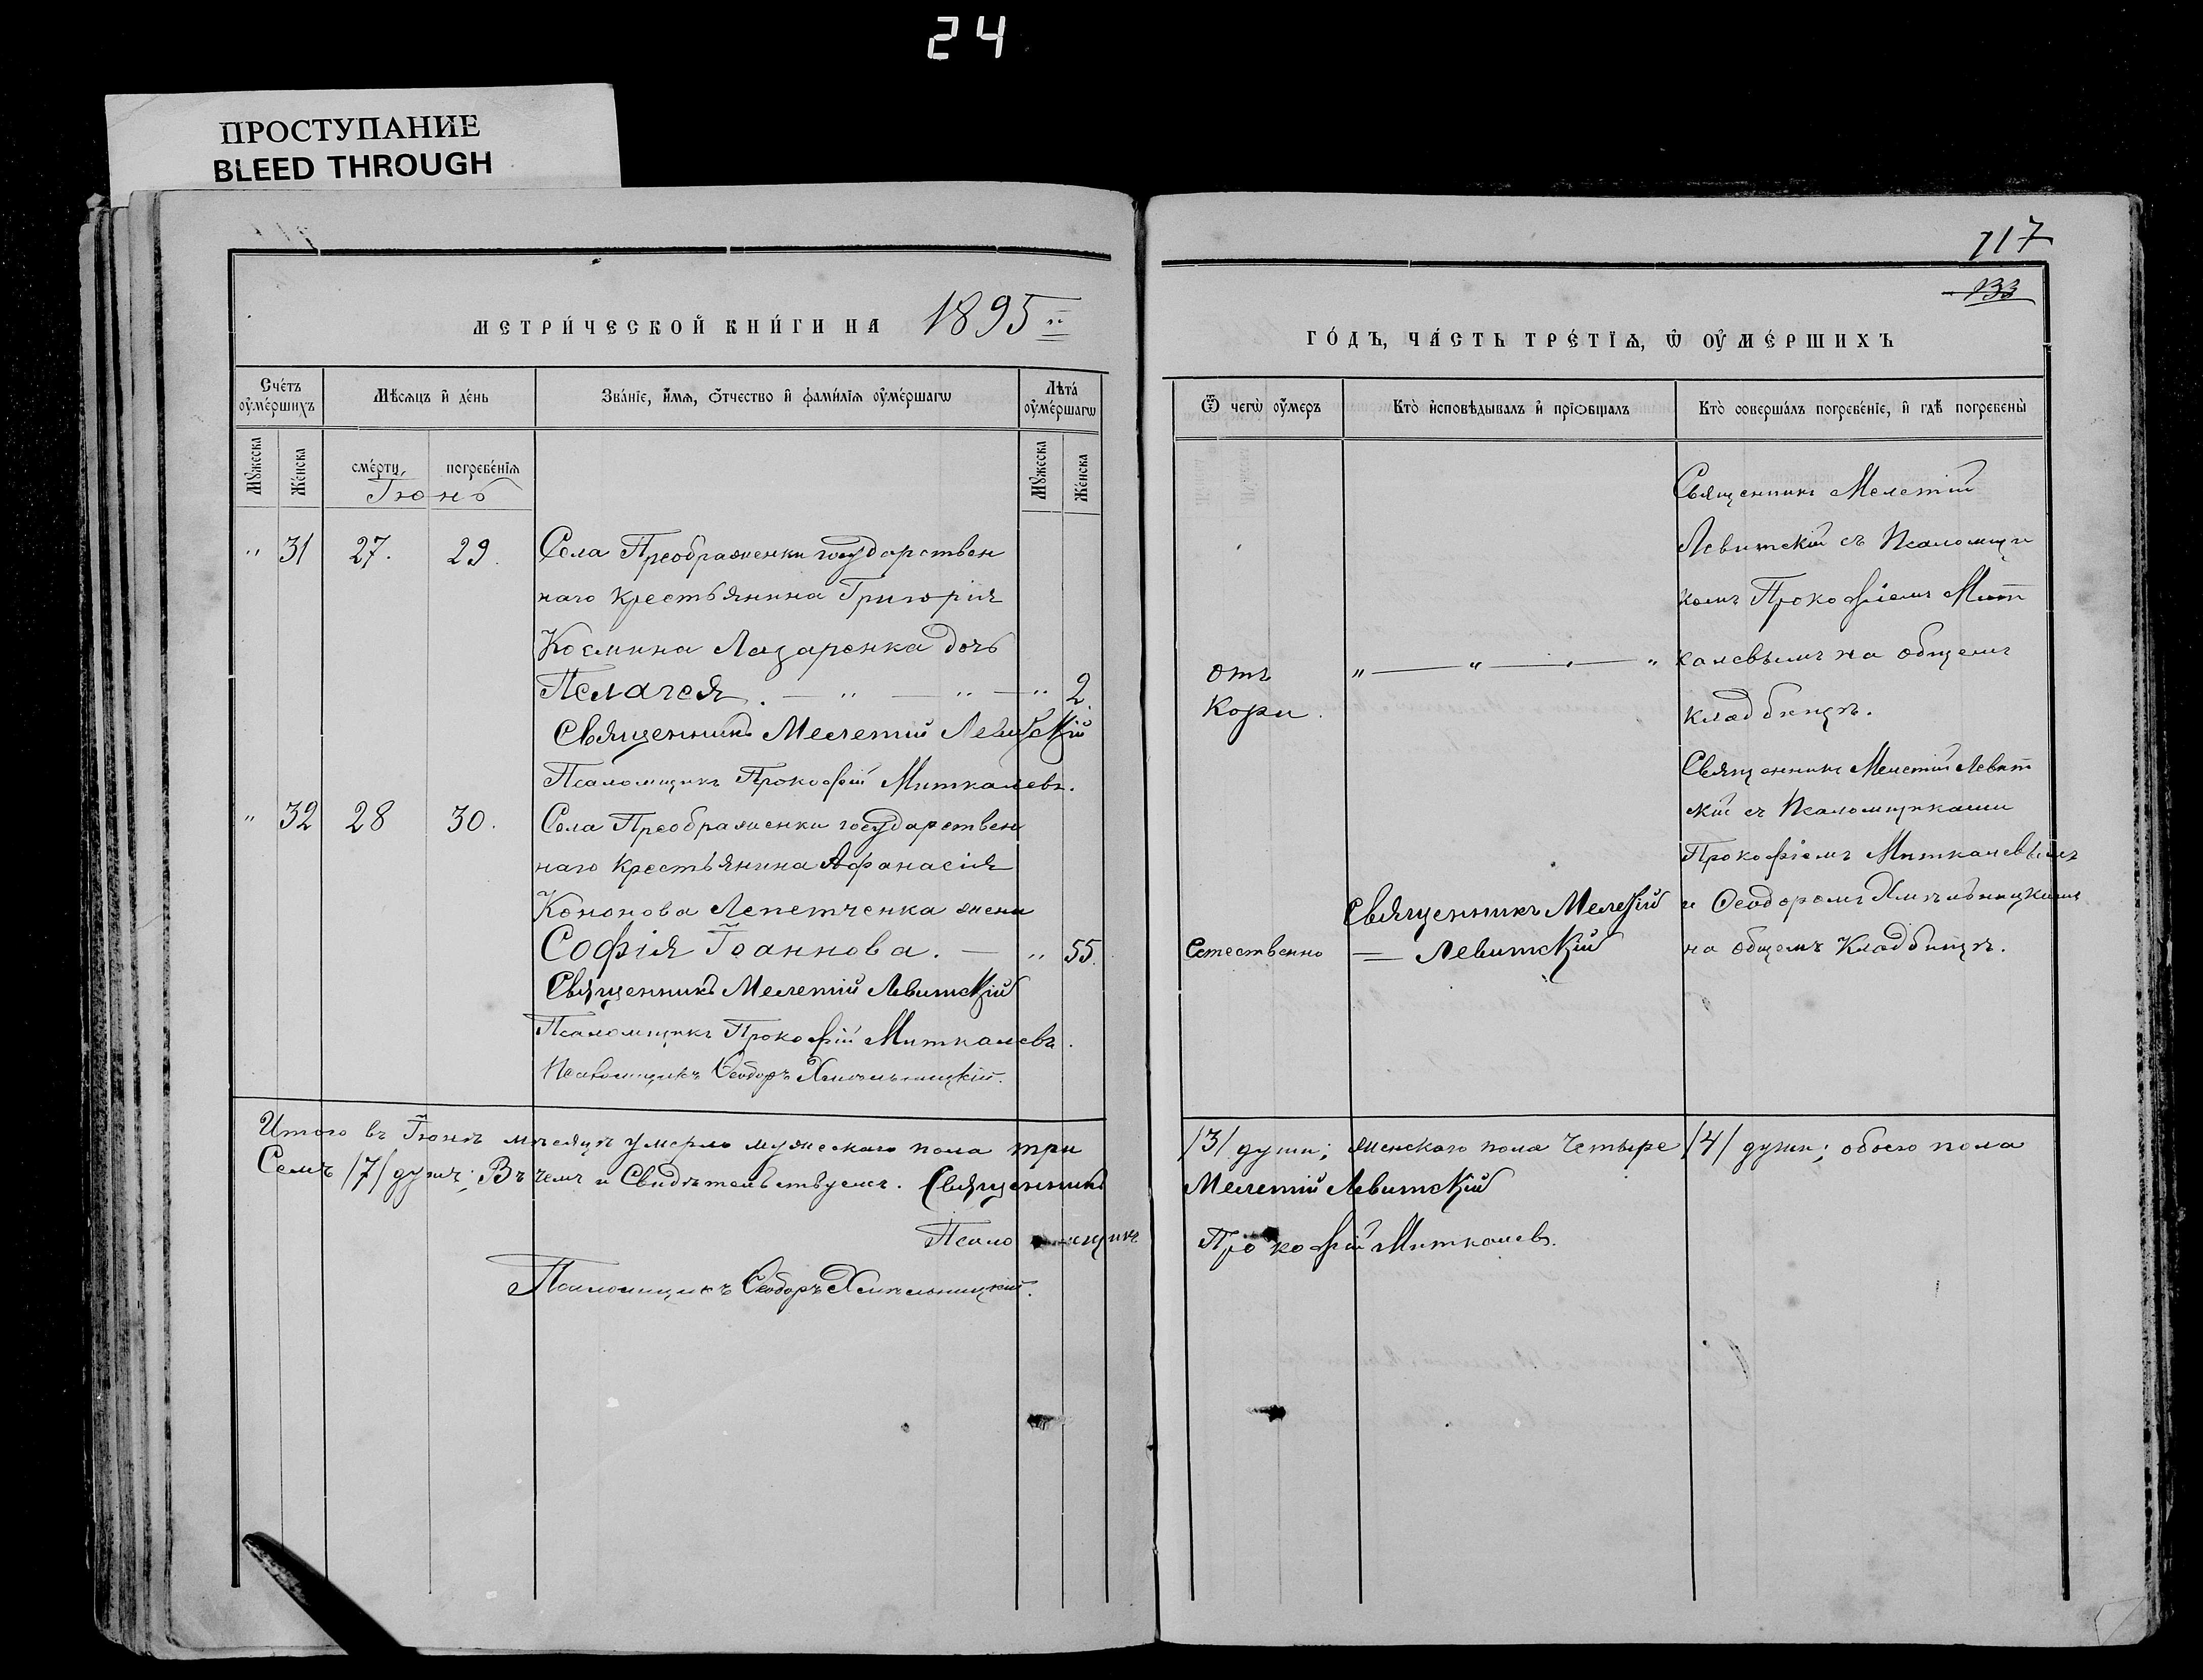 24
ПРОСТУПАНИЕ
BLEED THROUGH
117
133
МЕТРИ́ЧЕСКОЙ КНИ́ГИ НА 1895 й
ГО́ДЪ, ЧА́СТЬ ТРЕ́ТЇѦ, Ѡ҆ ОУ҆МЕ́РШИХЪ
Сче́тъ оу҆ме́ршихъ
Мѣ́сѧцъ и҆ де́нь
Зва́нїе, и҆́мѧ, ѻ҆́тчество и҆ фами́лїѧ оу҆ме́ршагѡ
Лѣта̀ оу҆ме́ршагѡ
Ѿ чегѡ̀ оу҆́меръ
Кто̀ и҆сповѣ́дывалъ и҆ прїѡбща́лъ
Кто̀ соверша́лъ погребе́нїе, и҆ гдѣ̀ погребены̀
Мꙋ́жеска
Же́нска
сме́рти
погребе́нїѧ
Мꙋ́жеска
Же́нска
Іюнь
" 31 27. 29.
Села Преображенки государствен
наго крестьянина Григорія
Космина Лазаренка дочь
Пелагея. — " — " — " 2.
Священникъ Мелетій Левитскій
Псаломщикъ Прокофій Миткалевъ.
отъ
кори.
" — " — " — "
Священникъ Мелетій
Левитскій съ Псаломщи
комъ Прокофіемъ Мит
калевымъ на общемъ
кладбищѣ.
" 32 28 30.
Села Преображенки государствен
наго крестьянина Афанасія
Кононова Лепетченка жена
Софія Іоаннова. — " 55.
Священникъ Мелетій Левитскій
Псаломщикъ Прокофій Миткалевъ.
Псаломщикъ Ѳеодоръ Хмѣльницкій.
Естественно
Священникъ Мелетій
— Левитскій
Священникъ Мелетій Левит
скій съ Псаломщиками
Прокофіемъ Миткалевымъ
и Ѳеодоромъ Хмѣльницкимъ
на общемъ Кладбищѣ.
Итого въ Іюнѣ мѣсяцѣ умерло мужескаго пола три /3/ души; женскаго пола четыре /4/ души; обоего пола
Семь /7/ душъ; Въ чемъ и Свидѣтельствуемъ. Священникъ Мелетій Левитскій
Псаломщикъ Прокофій Миткалевъ.
Псаломщикъ Ѳеодоръ Хмѣльницкій.